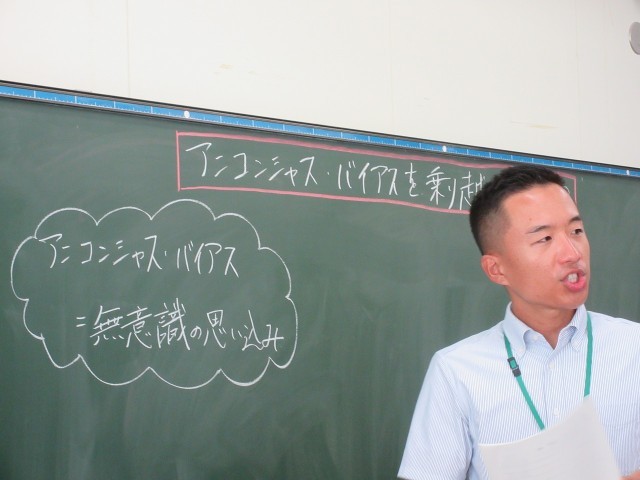 アンコンシャス・バイアスを乗り越
アンコンシャス・バイアス
=無意識の思い込み